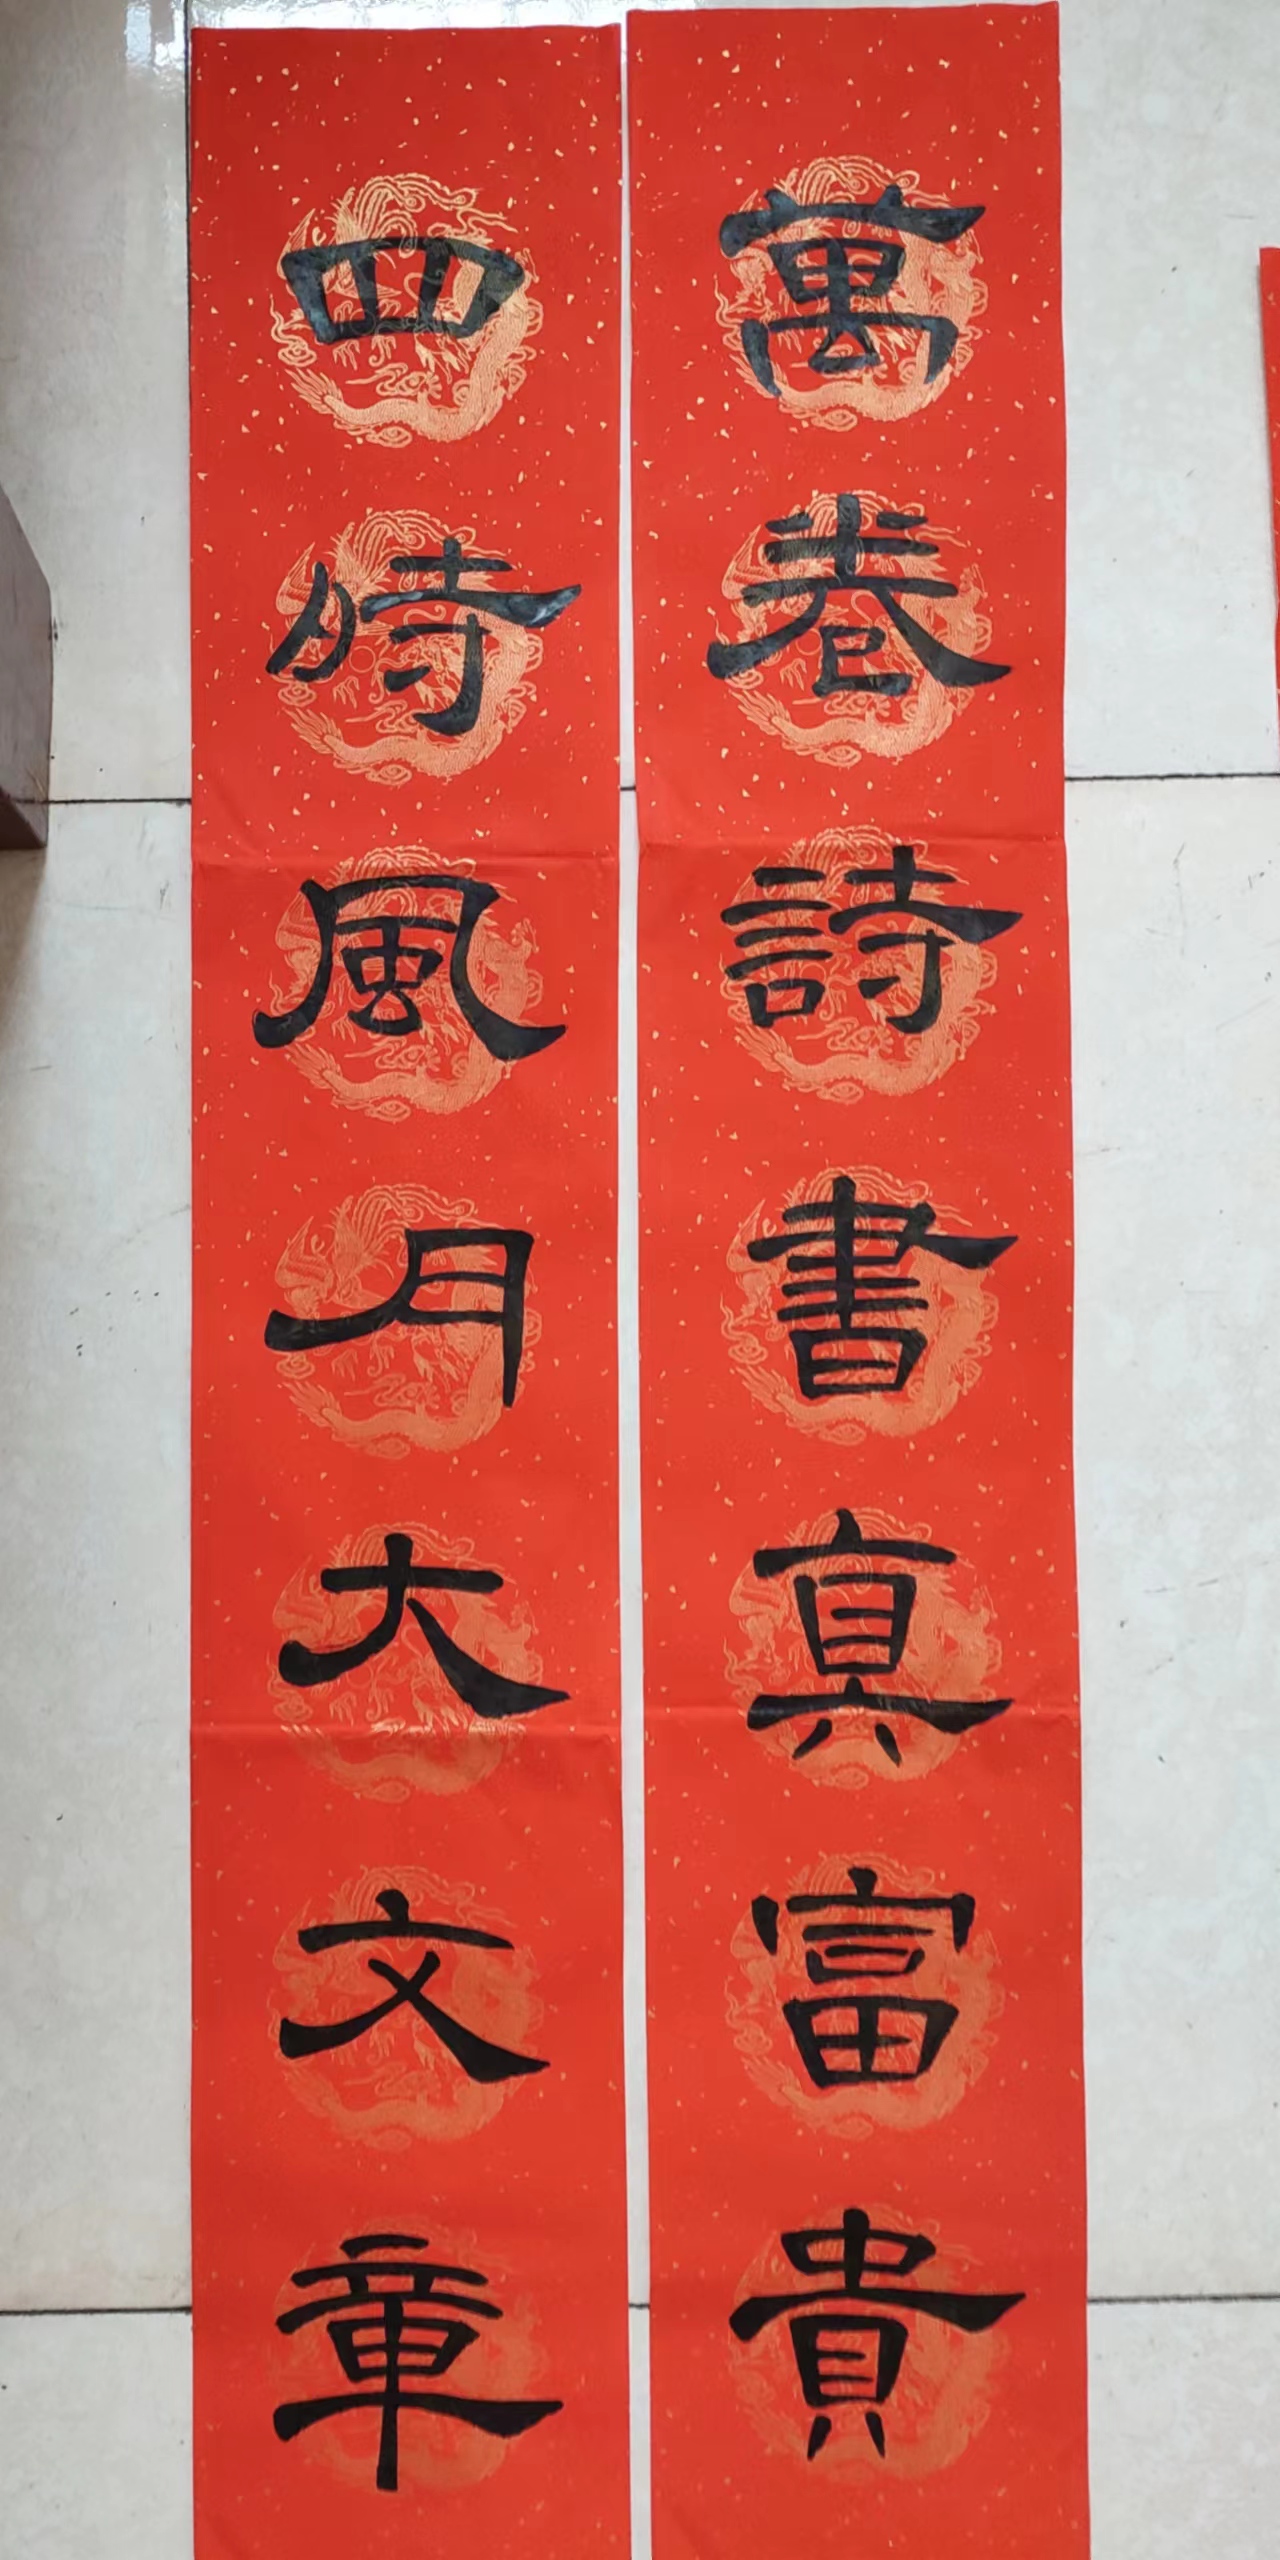 萬卷詩書真富貴
四時風月大文章